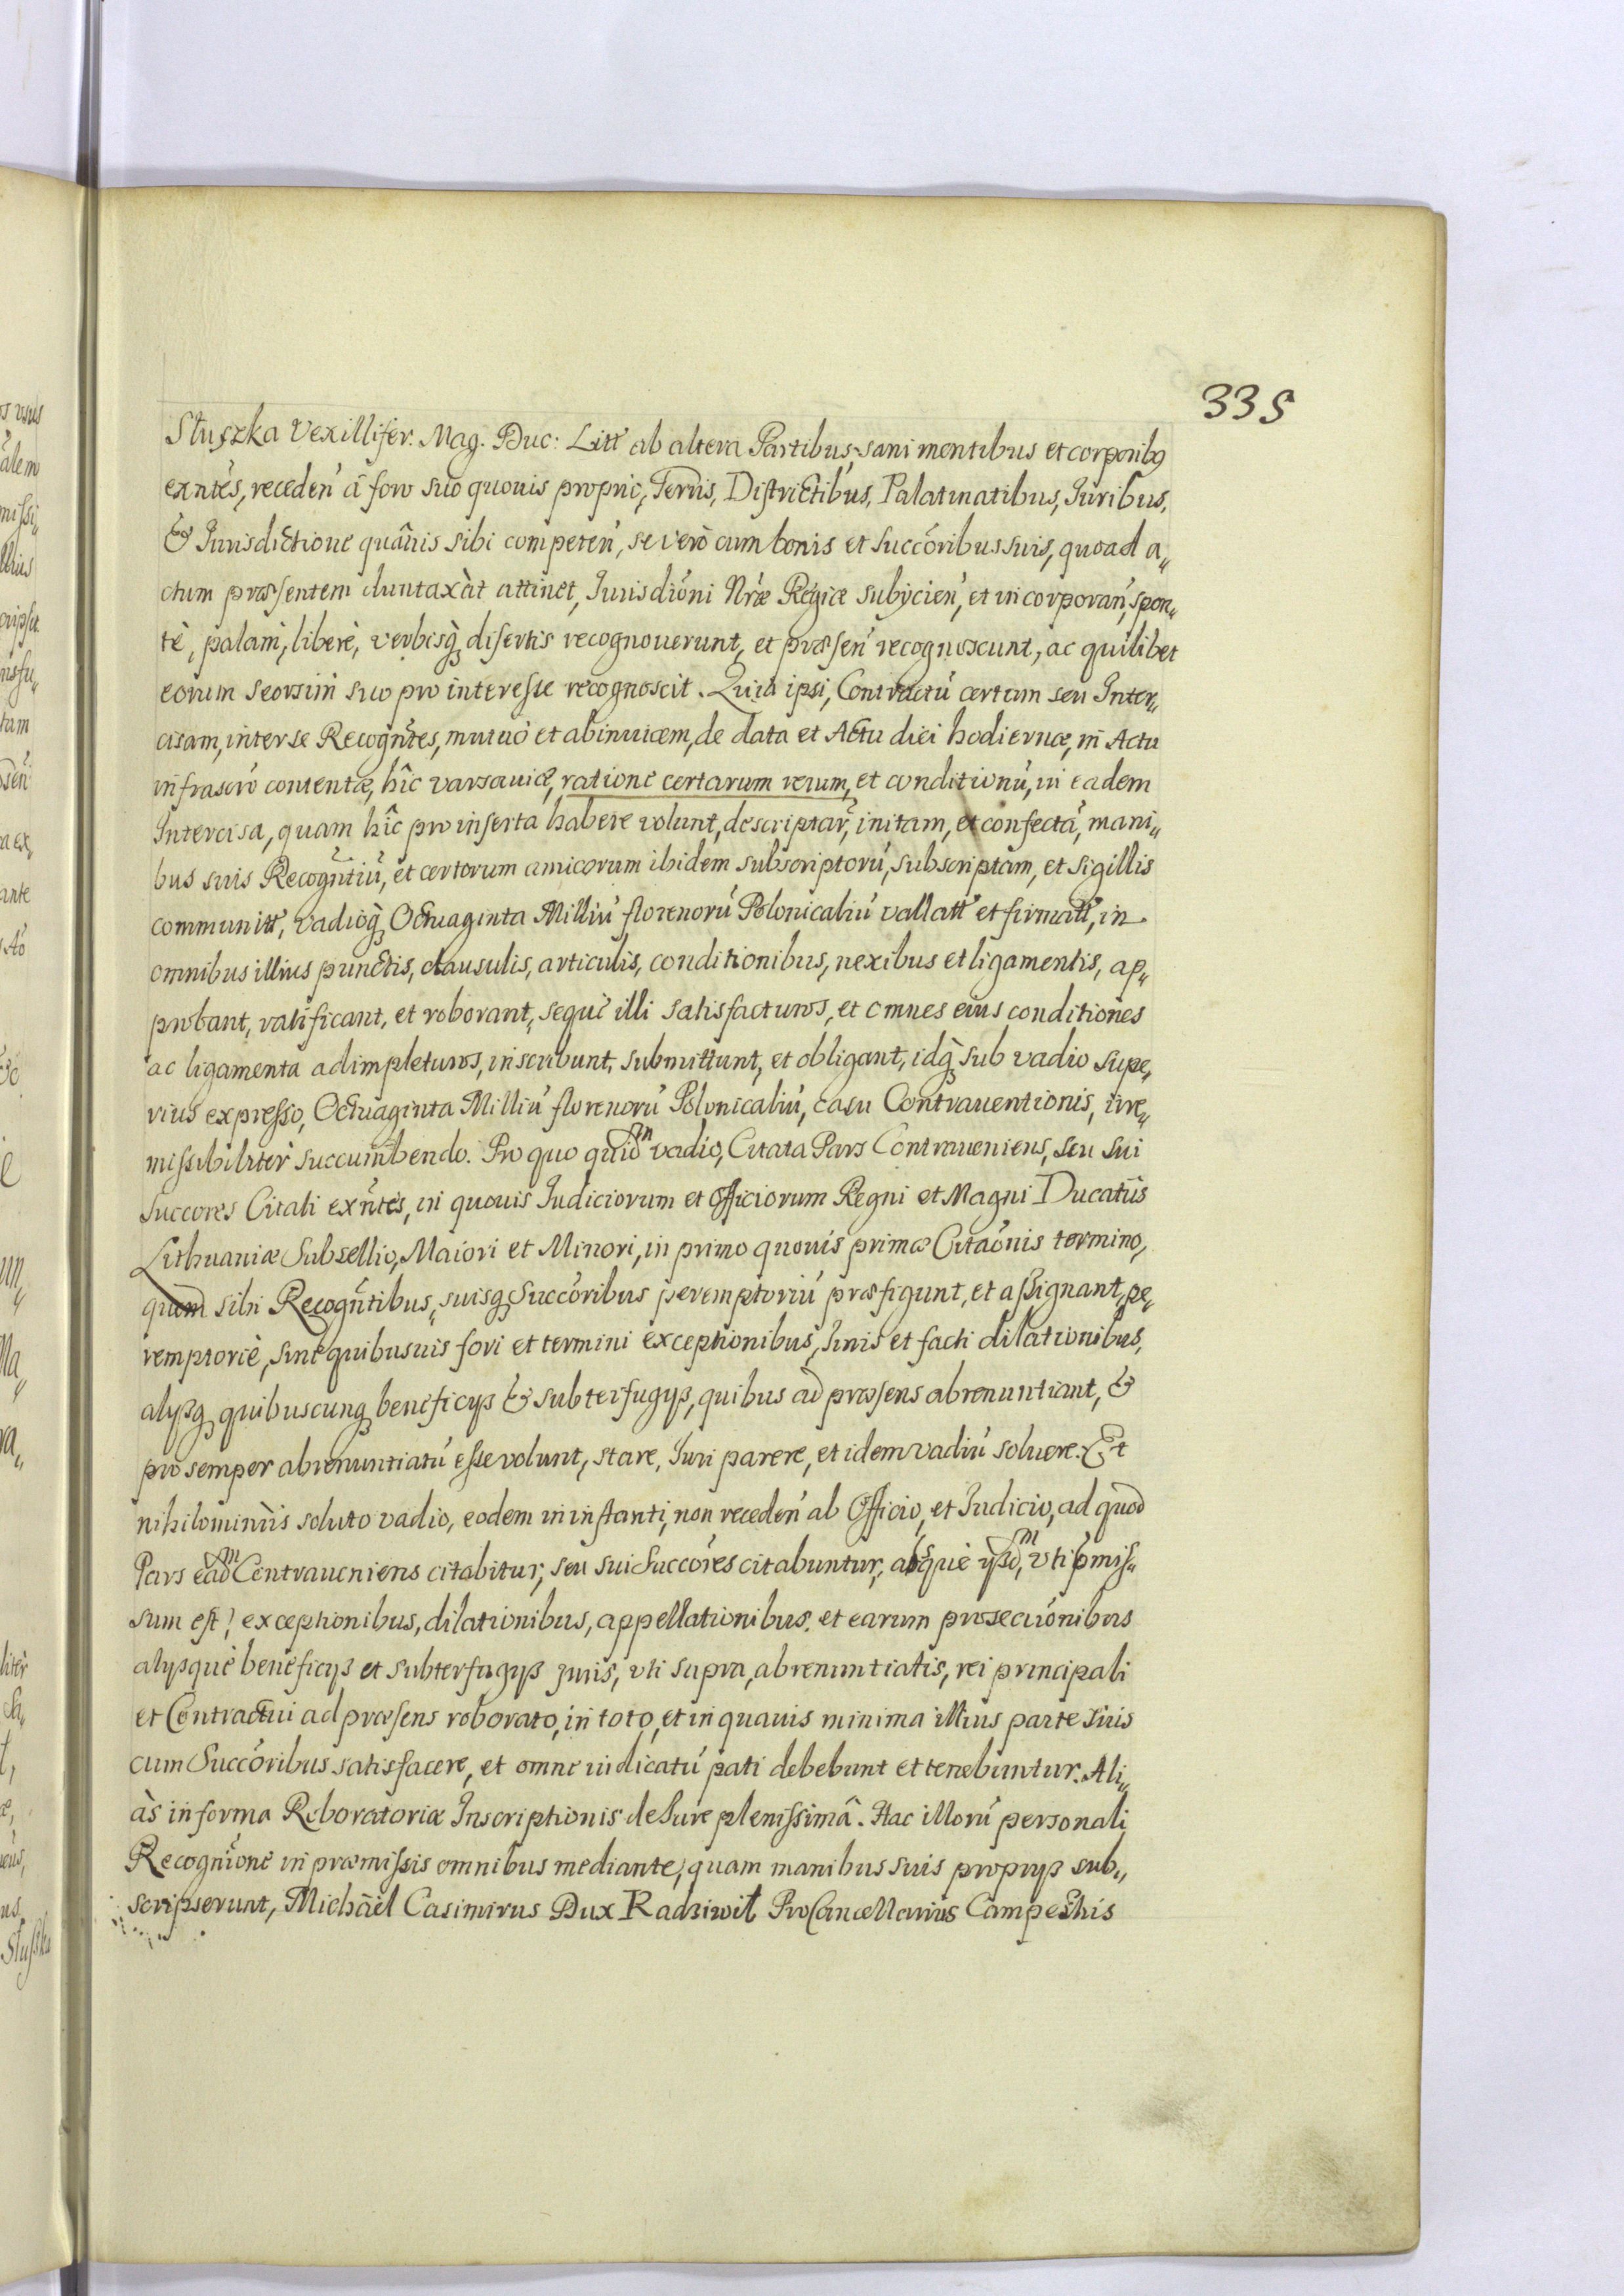 335
Słuszka Vexillifer. Mag. Duc: Litt ab altera Partibus, sani mentibus et corporibq
exntes, receden̄ â foro suo quouis proprio, Terris, Districtibus, Palatinatibus, Iuribus,
& Iurisdictione quâuis sibi competen̄, se verò cum bonis et succoribus suis, quoad a„
ctum præsentem duntaxàt attinet, Iurisdiōni Nræ Regiæ subijcien̄, et incorporan̄, spon„
tè, palam, liberè, verbisq́ disertis recognouerunt, et præsen̄ recognoscunt, ac quilibet
eorum seorsim suo pro interesse recognoscit. Quia ipsi, Contractū certum seu Inter„
cisam, inter se Recogntes, mutuò et abinuicem, de data et Actu diei hodiernæ, in Actu
infrascrō contentæ, hîc varsauiæ, ratione certarum rerum, et conditionū, in eadem
Intercisa, quam hîc pro inserta habere volunt, descriptar̄, initam, et confectā, mani„
bus suis Recogntiū, et certorum amicorum ibidem subscriptorū, subscriptam, et sigillis
communitt, vadioq́ Octuaginta Milliū florenorū Polonicaliū vallatt et firmatt, in
omnibus illius punctis, clausulis, articulis, conditionibus, nexibus et ligamentis, ap„
probant, ratificant, et roborant, sequè illi satisfacturos, et omnes eius conditiones
ac ligamenta adimpleturos, inscribunt, submittunt, et obligant, idq́ sub vadio supe„
rius expresso, Octuaginta Milliū florenorū Polonicaliū, casu Contrauentionis, irre„
missibiliter succumbendo. Pro quo quidm vadio, Citata Pars Contraueniens, seu sui
Succores Citati exntes, in quouis Iudiciorum et Officiorum Regni et Magni Ducatûs
Lithuaniæ Subsellio, Maiori et Minori, in primo quouis primæ Citaōnis termino,
quem sibi Recogntibus, suisq́ Succoribus peremptoriū præfigunt, et assignant, pe„
remptoriè, sine quibusuis fori et termini exceptionibus, Iuris et facti dilationibus,
alijsq́ quibuscunq́ beneficijs & subterfugijs, quibus ad præsens abrenuntiant, &
pro semper abrenuntiatū esse volunt, stare, Iuri parere, et idem vadiū soluere. Et
nihilominùs soluto vadio, eodem in instanti, non receden̄ ab Officio, et Iudicio, ad quod
Pars eadm Contraueniens citabitur, seu sui Succores citabuntur, absque ijsdm, vti pmis„
sum est, exceptionibus, dilationibus, appellationibus, et earum prosecuōnibus
alijsquè beneficijs et subterfugijs Iuris, vti supra, abrenuntiatis, rei principali
et Contractui ad præsens roborato, in toto, et in quauis minima illius parte suis
cum Succoribus satisfacere, et omne iudicatū pati debebunt et tenebuntur. Ali„
às in forma Roboratoriæ Inscriptionis de Iure plenissimâ. Hac illorū personali
Recogniōne in præmissis omnibus mediante, quam manibus suis proprijs sub„
scripserunt, Michäel Casimirus Dux Radziwił ProCancellarius Campestris